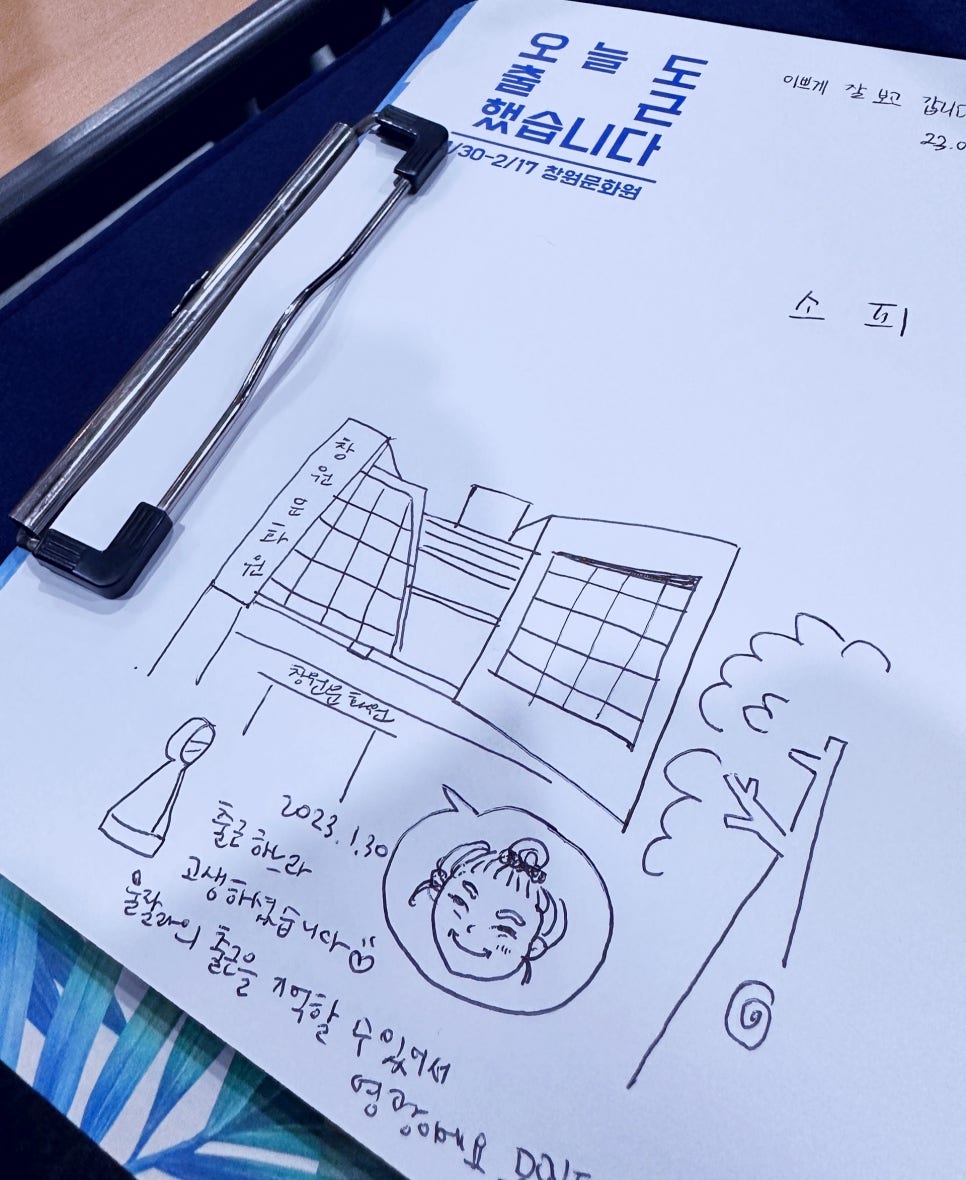 오늘도
출 근
했습니다
/30-2/17 창원문화원
이쁘게 잘 보고 갑니다
23.0
소 피
창원문화원
창원문화원
2023.1.30
출근하느라
고생하셨습니다
울랄라의 출근을 기억할 수 있어서
영광이에요